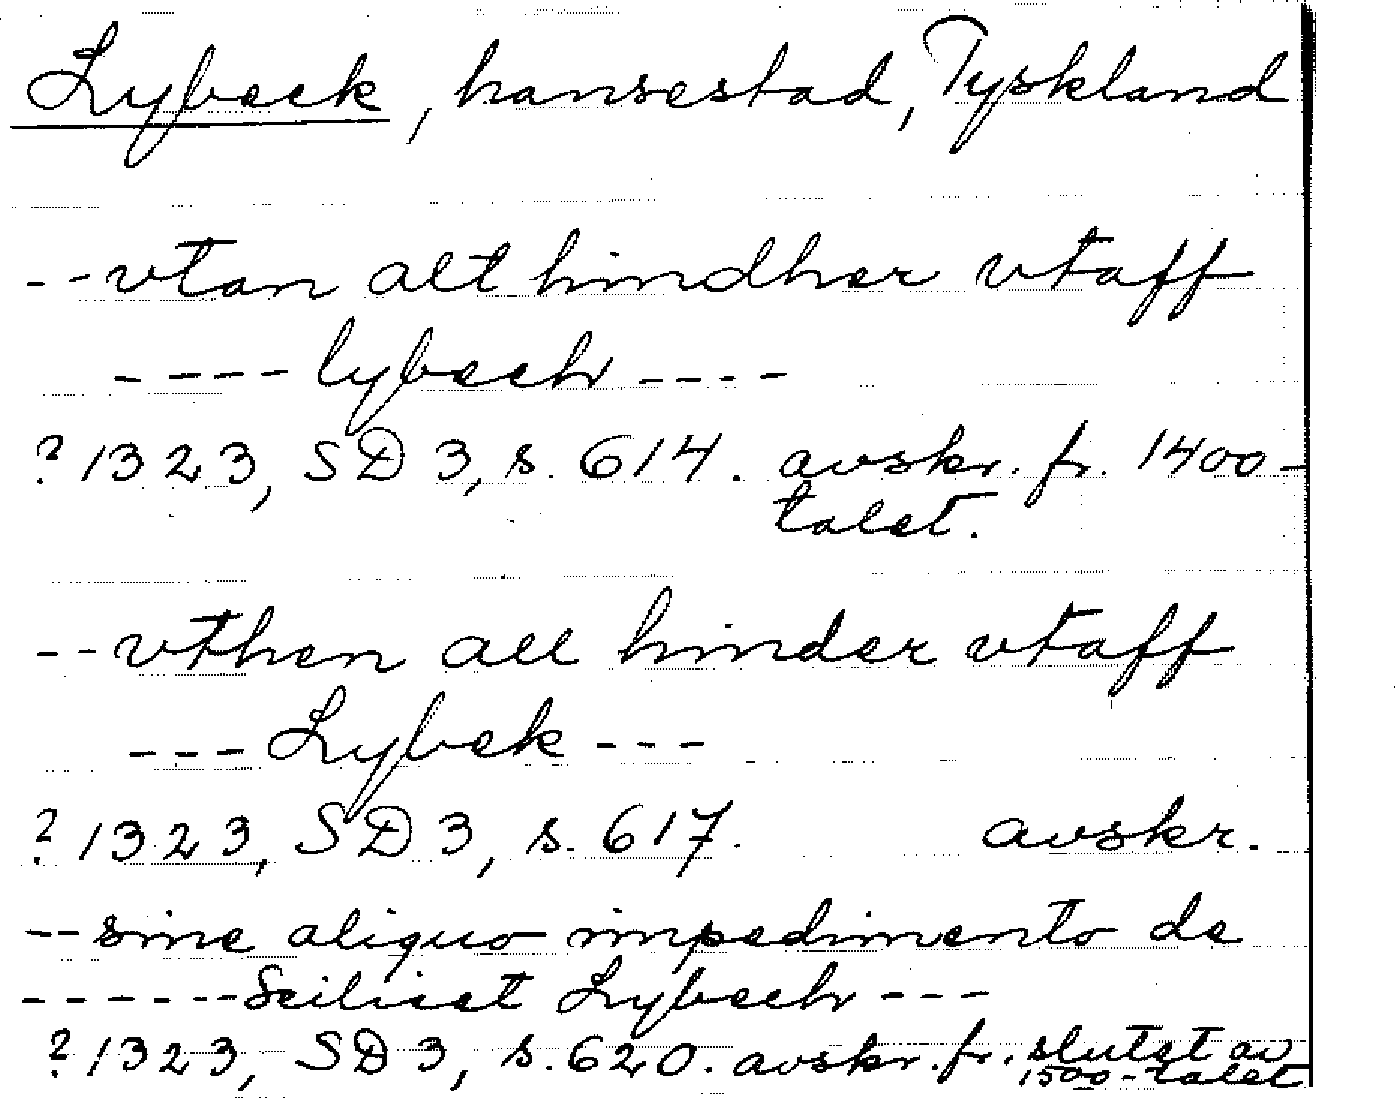 Lybeck, hansestad, Tyskland
--vtan alt hindher vtaff
----lybech----
? 1323, SD 3, s. 614. avskr. fr. 1400-
talet.
--vthen all hinder vtaff
---Lybek---
? 1323, SD 3, s. 617. avskr.
--sine aliquo impedimento de
------Scilicet Lybech---
? 1323, SD 3, s. 620. avskr. fr. slutet av
1500-talet